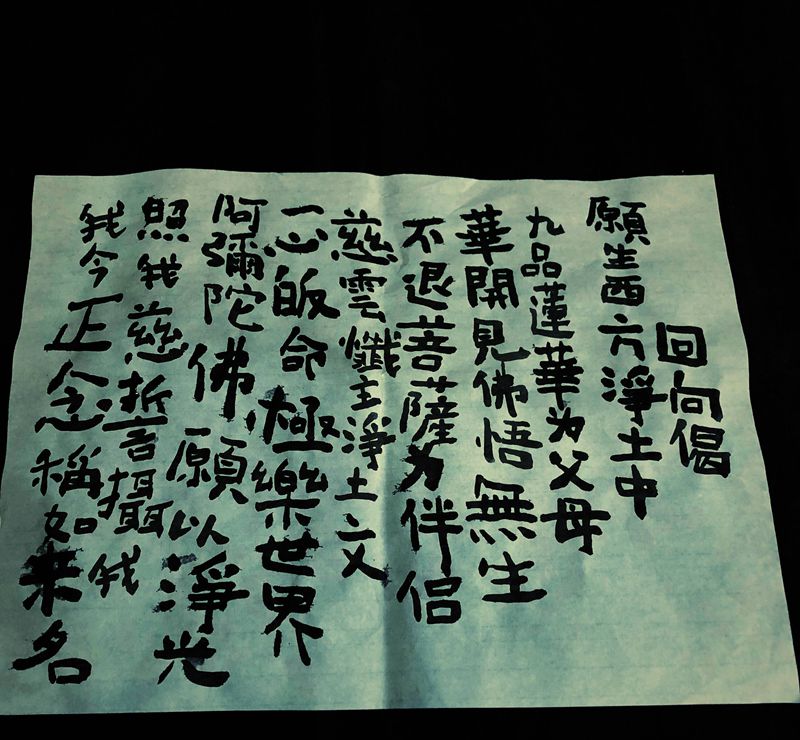 回向偈
願生西方淨土中
九品蓮華为父母
華開見佛悟無生
不退菩薩为伴侶
慈雲懺主淨土文
一心皈命極樂世界
阿彌陀佛願以淨光
照我慈誓攝我
我今正念稱如来名